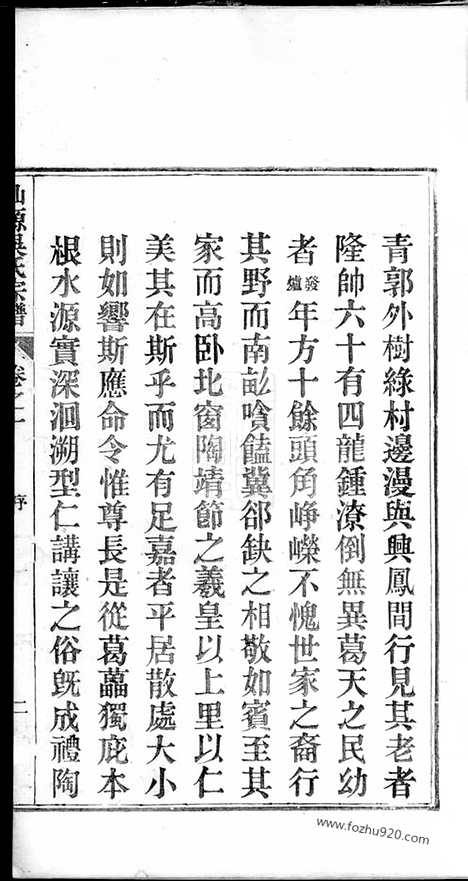 青郭外樹綠村邊漫與興鳳間行見其老者
隆帥六十有四龍鍾潦倒無異葛天之民幼
者發爐年方十餘頭角崢嶸不愧世家之裔行
其野而南畝嗿饁冀郤缺之相敬如賓至其
家而高卧北窗陶靖節之羲皇以上里以仁
美其在斯乎而尤有足嘉者平居散處大小
則如響斯應命令惟尊長是從葛藟獨庇本
根水源實深洄溯型仁講讓之俗旣成禮陶
山源吳氏宗譜 卷之一 序 二
www.fozhu920.com